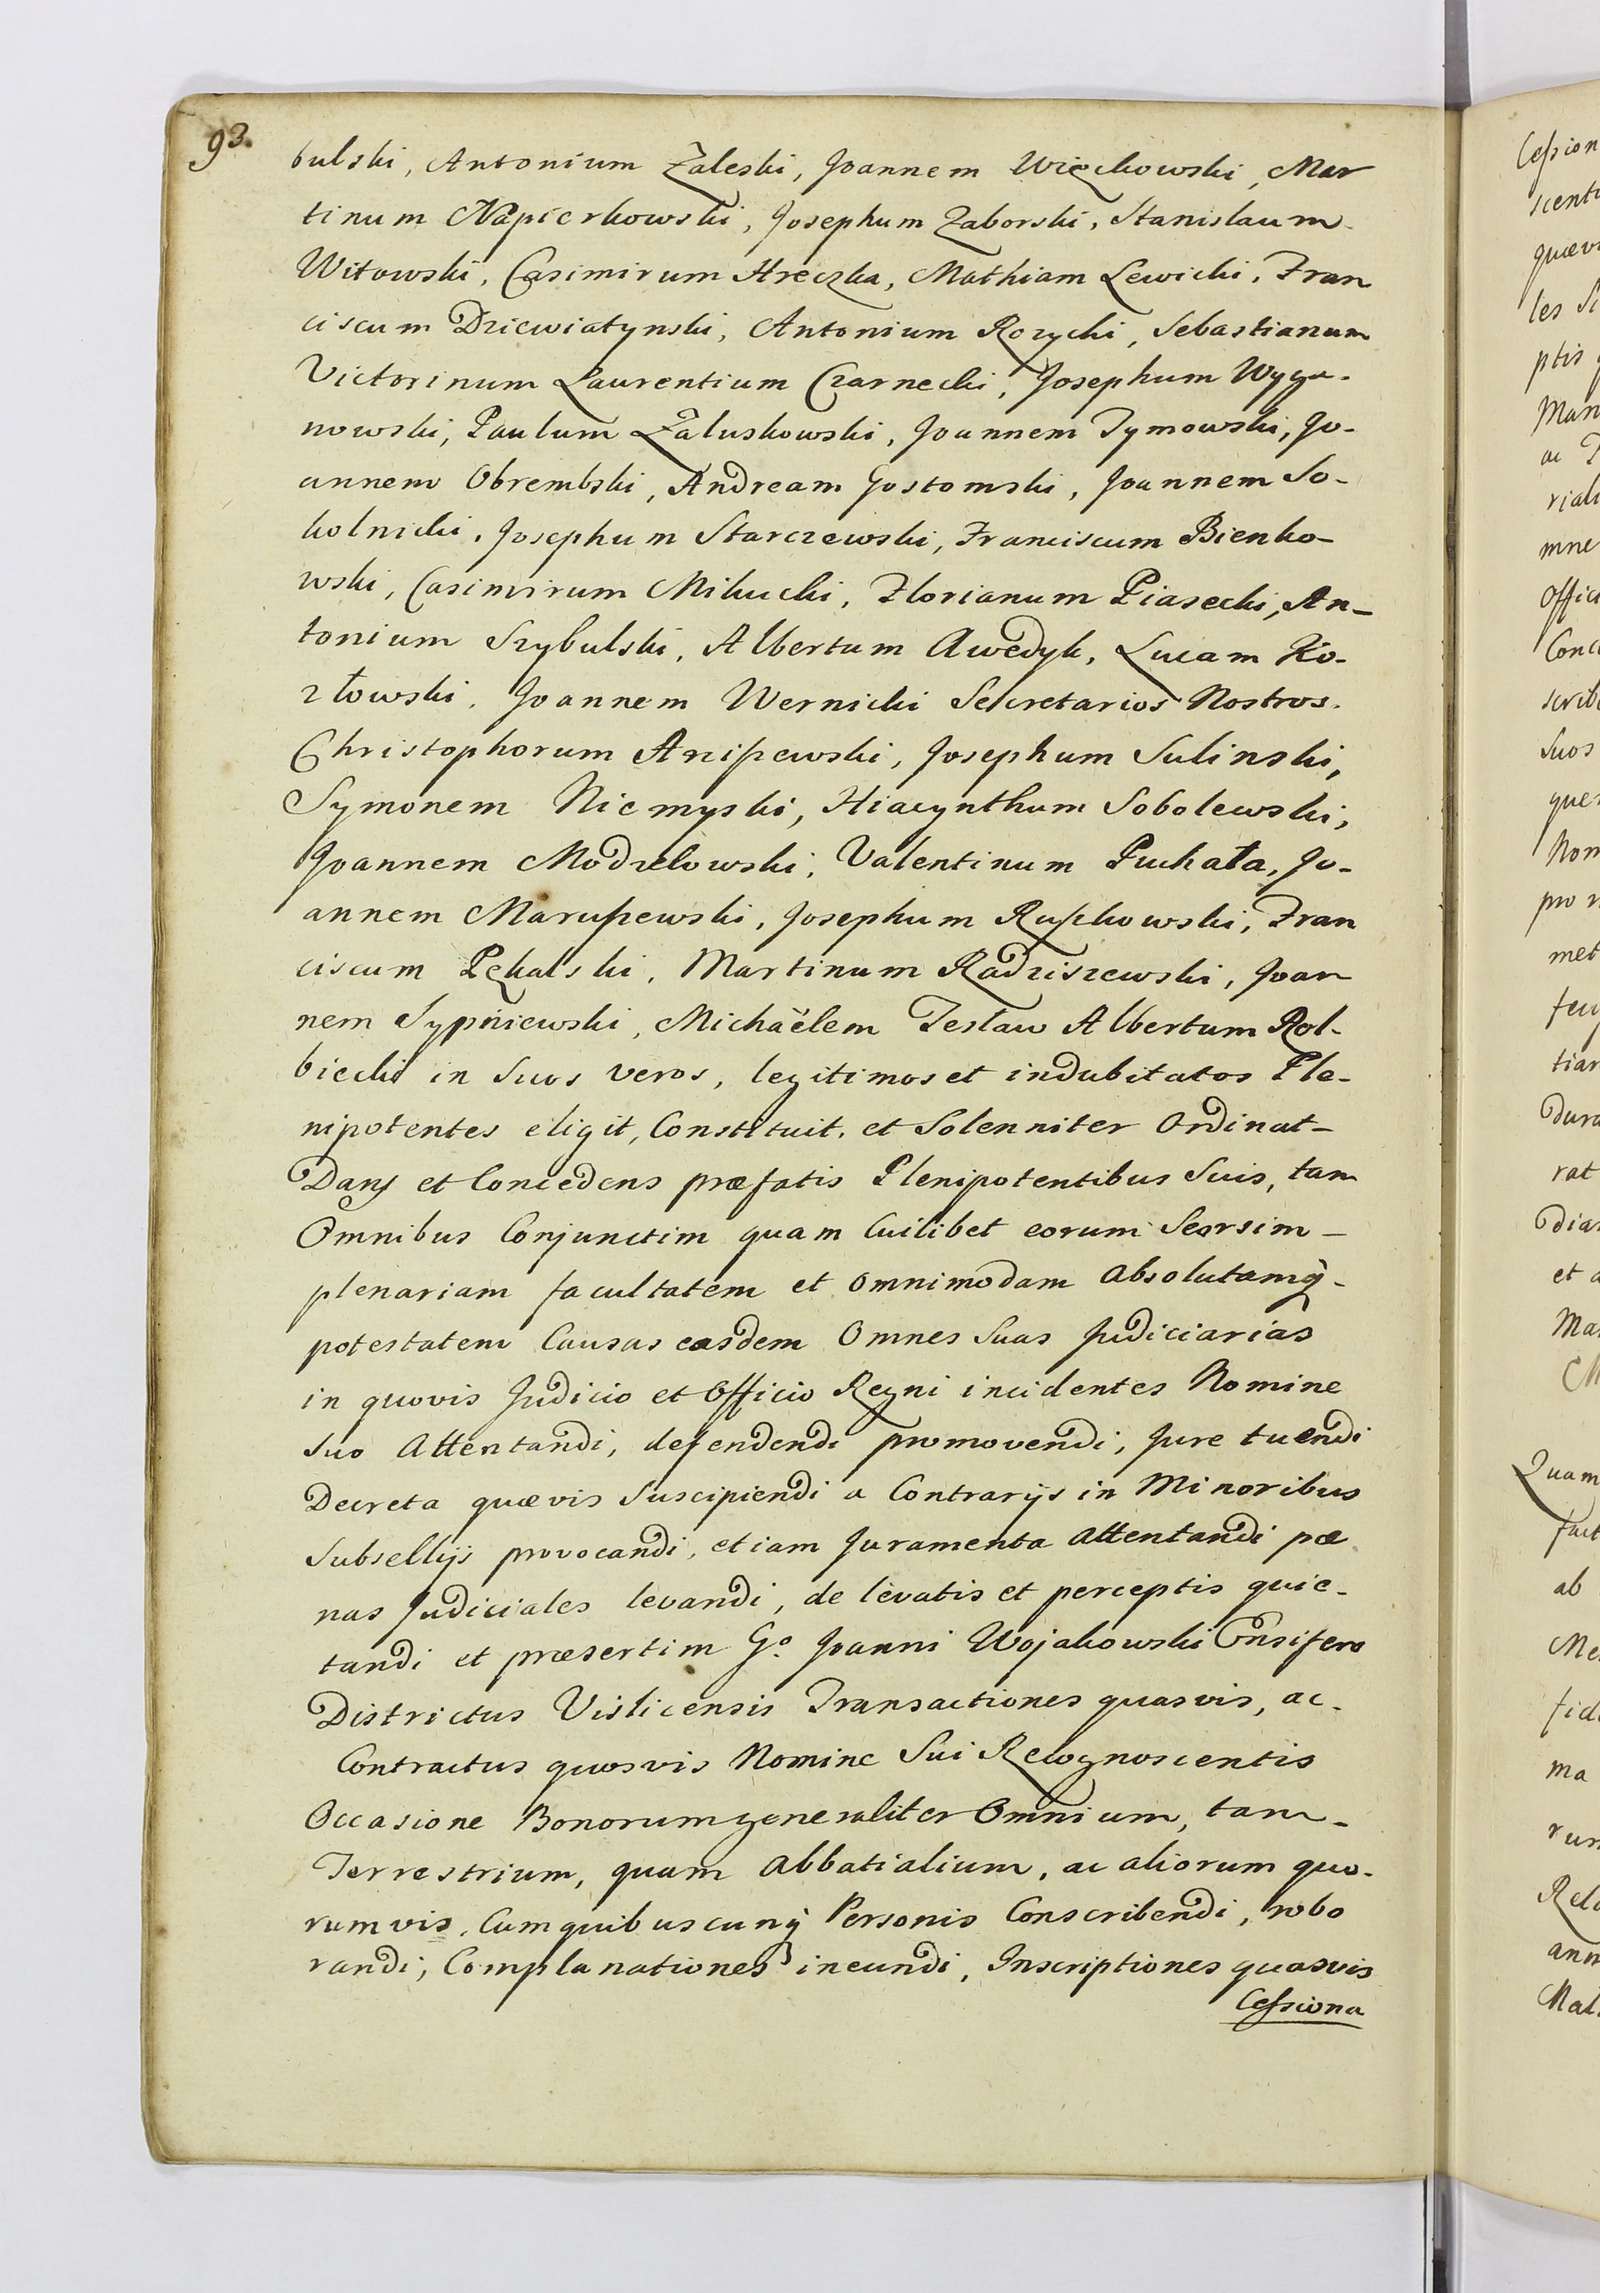 93.
bulski, Antonium Zaleski, Joannem Więckowski, Mar
tinum Napierkowski, Josephum Zaborski, Stanislaum
Witowski, Casimirum Hreczka, Mathiam Lewicki, Fran
ciscum Dziewiatynski, Antonium Rozycki, Sebastianum
Victorinum Laurentium Czarnecki, Josephum Wyga-
nowski, Paulum Załuskowski, Joannem Tymowski, Jo-
annem Obrembski, Andream Gostomski, Joannem So-
kolnicki, Josephum Starczewski, Franciscum Bienko-
wski, Casimirum Mikucki, Florianum Piasecki, An-
tonium Szybulski, Albertum Awedyk, Lucam Ko-
złowski, Joannem Wernicki Secretarios Nostros.
Christophorum Aniszewski, Josephum Sulinski,
Symonem Niemyski, Hiacynthum Sobolewski,
Joannem Modzelowski, Valentinum Puchała, Jo-
annem Maruszewski, Josephum Ruszkowski, Fran
ciscum Pękalski, Martinum Radziszewski, Joan
nem Sypniewski, Michaëlem Teslaw Albertum Rol-
biecki in Suos veros, legitimos et indubitatos Ple-
nipotentes eligit, Constituit, et Solenniter Ordinat-
Dans et Concedens præfatis Plenipotentibus Suis, tam
Omnibus Conjunctim quam Cuilibet eorum Seorsim-
plenariam facultatem et omnimodam absolutamq̃-
potestatem Causas easdem Omnes Suas Judiciarias
in quovis Judicio et Officio Regni incidentes Nomine
Suo Attentandi, defendendi promovendi, Jure tuendi
Decreta quævis Suscipiendi a Contrarijs in Minoribus
Subsellijs provocandi, etiam Juramenta attentandi pæ
nas Judiciales levandi, de levatis et perceptis quie-
tandi et præsertim G.o Joanni Wojakowski Ensifero
Districtus Vislicensis Transactiones quasvis, ac-
Contractus quosvis Nomine Sui Recognoscentis
Occasione Bonorum generaliter Omnium, tam-
Terrestrium, quam Abbatialium, ac aliorum quo-
rumvis, Cum quibuscunq̃ Personis Conscribendi, robo
randi, Complanationes ineundi, Inscriptiones quasvis
Cessiona